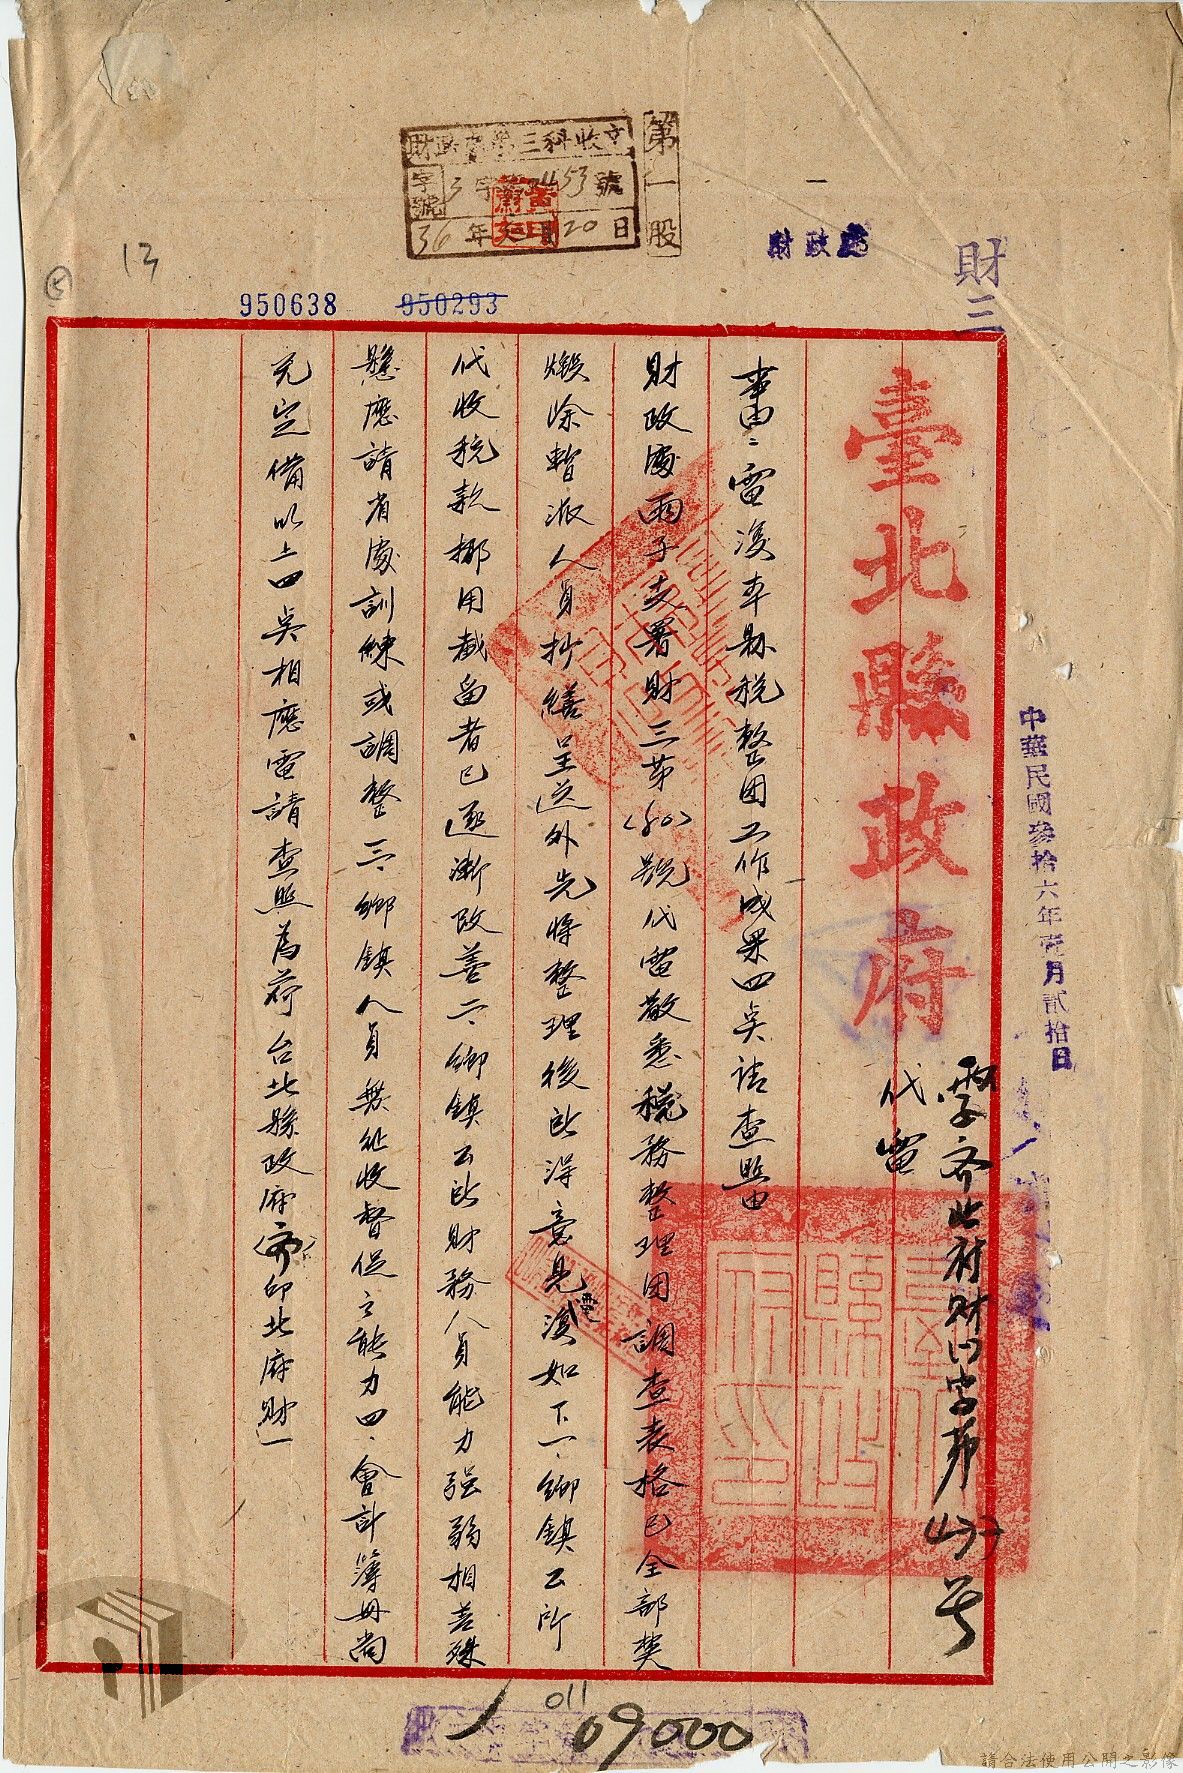 財政處第三科收文
第一股
字號 3字第3453號
36年 月20日
財政處
財三
13
950638
950293
中華民國參拾六年壹月貳拾日
臺北縣政府
代電
齊北府財 字第 号
事由：電復本縣稅整團工作成果四点請查照由
財政處雨子支署財三第(80)號代電敬悉稅務整理團調查表格已全部
燬除暫派人員抄繕呈送外先將整理後所得意見電復如下一、鄉鎮公所
代收稅款挪用截留者已逐漸改善二、鄉鎮公所財務人員能力强弱相差殊
懸應請省處訓練或調整三、鄉鎮人員無征收督促之能力四、會計簿冊尚
无完備以上四点相應電請查照為荷台北縣政府(齊)印北府財一
011
09000
請合法使用公開之影像